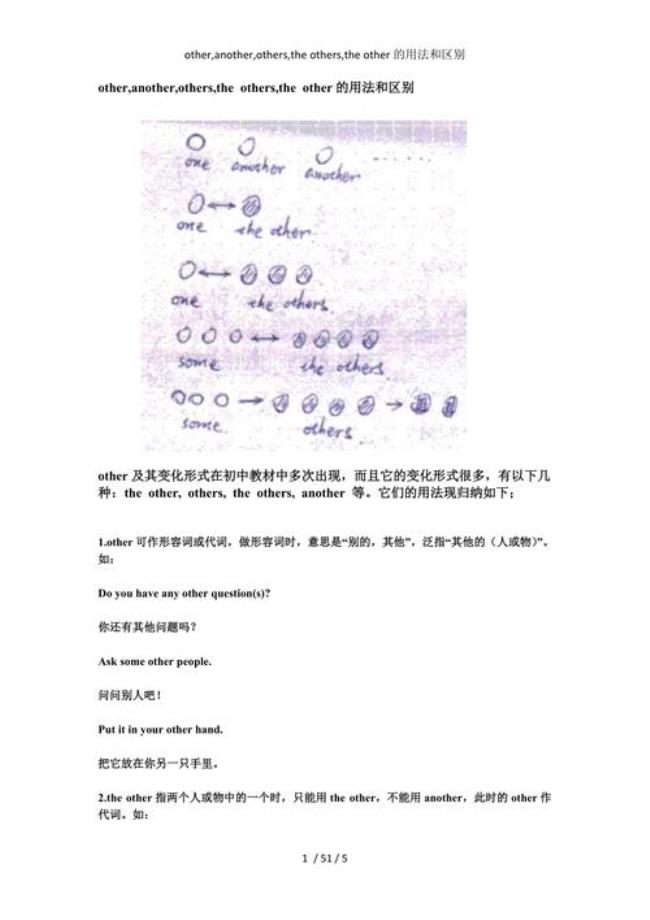 other,another,others,the others,the other 的用法和区别
other,another,others,the others,the other 的用法和区别
one another another ......
one the other
one the others
some the others
some others
other 及其变化形式在初中教材中多次出现，而且它的变化形式很多，有以下几
种：the other, others, the others, another 等。它们的用法现归纳如下；
1.other 可作形容词或代词，做形容词时，意思是“别的，其他”，泛指“其他的（人或物）”。
如：
Do you have any other question(s)?
你还有其他问题吗？
Ask some other people.
问问别人吧！
Put it in your other hand.
把它放在你另一只手里。
2.the other 指两个人或物中的一个时，只能用 the other，不能用 another，此时的 other 作
代词。如：
1 / 51 / 5